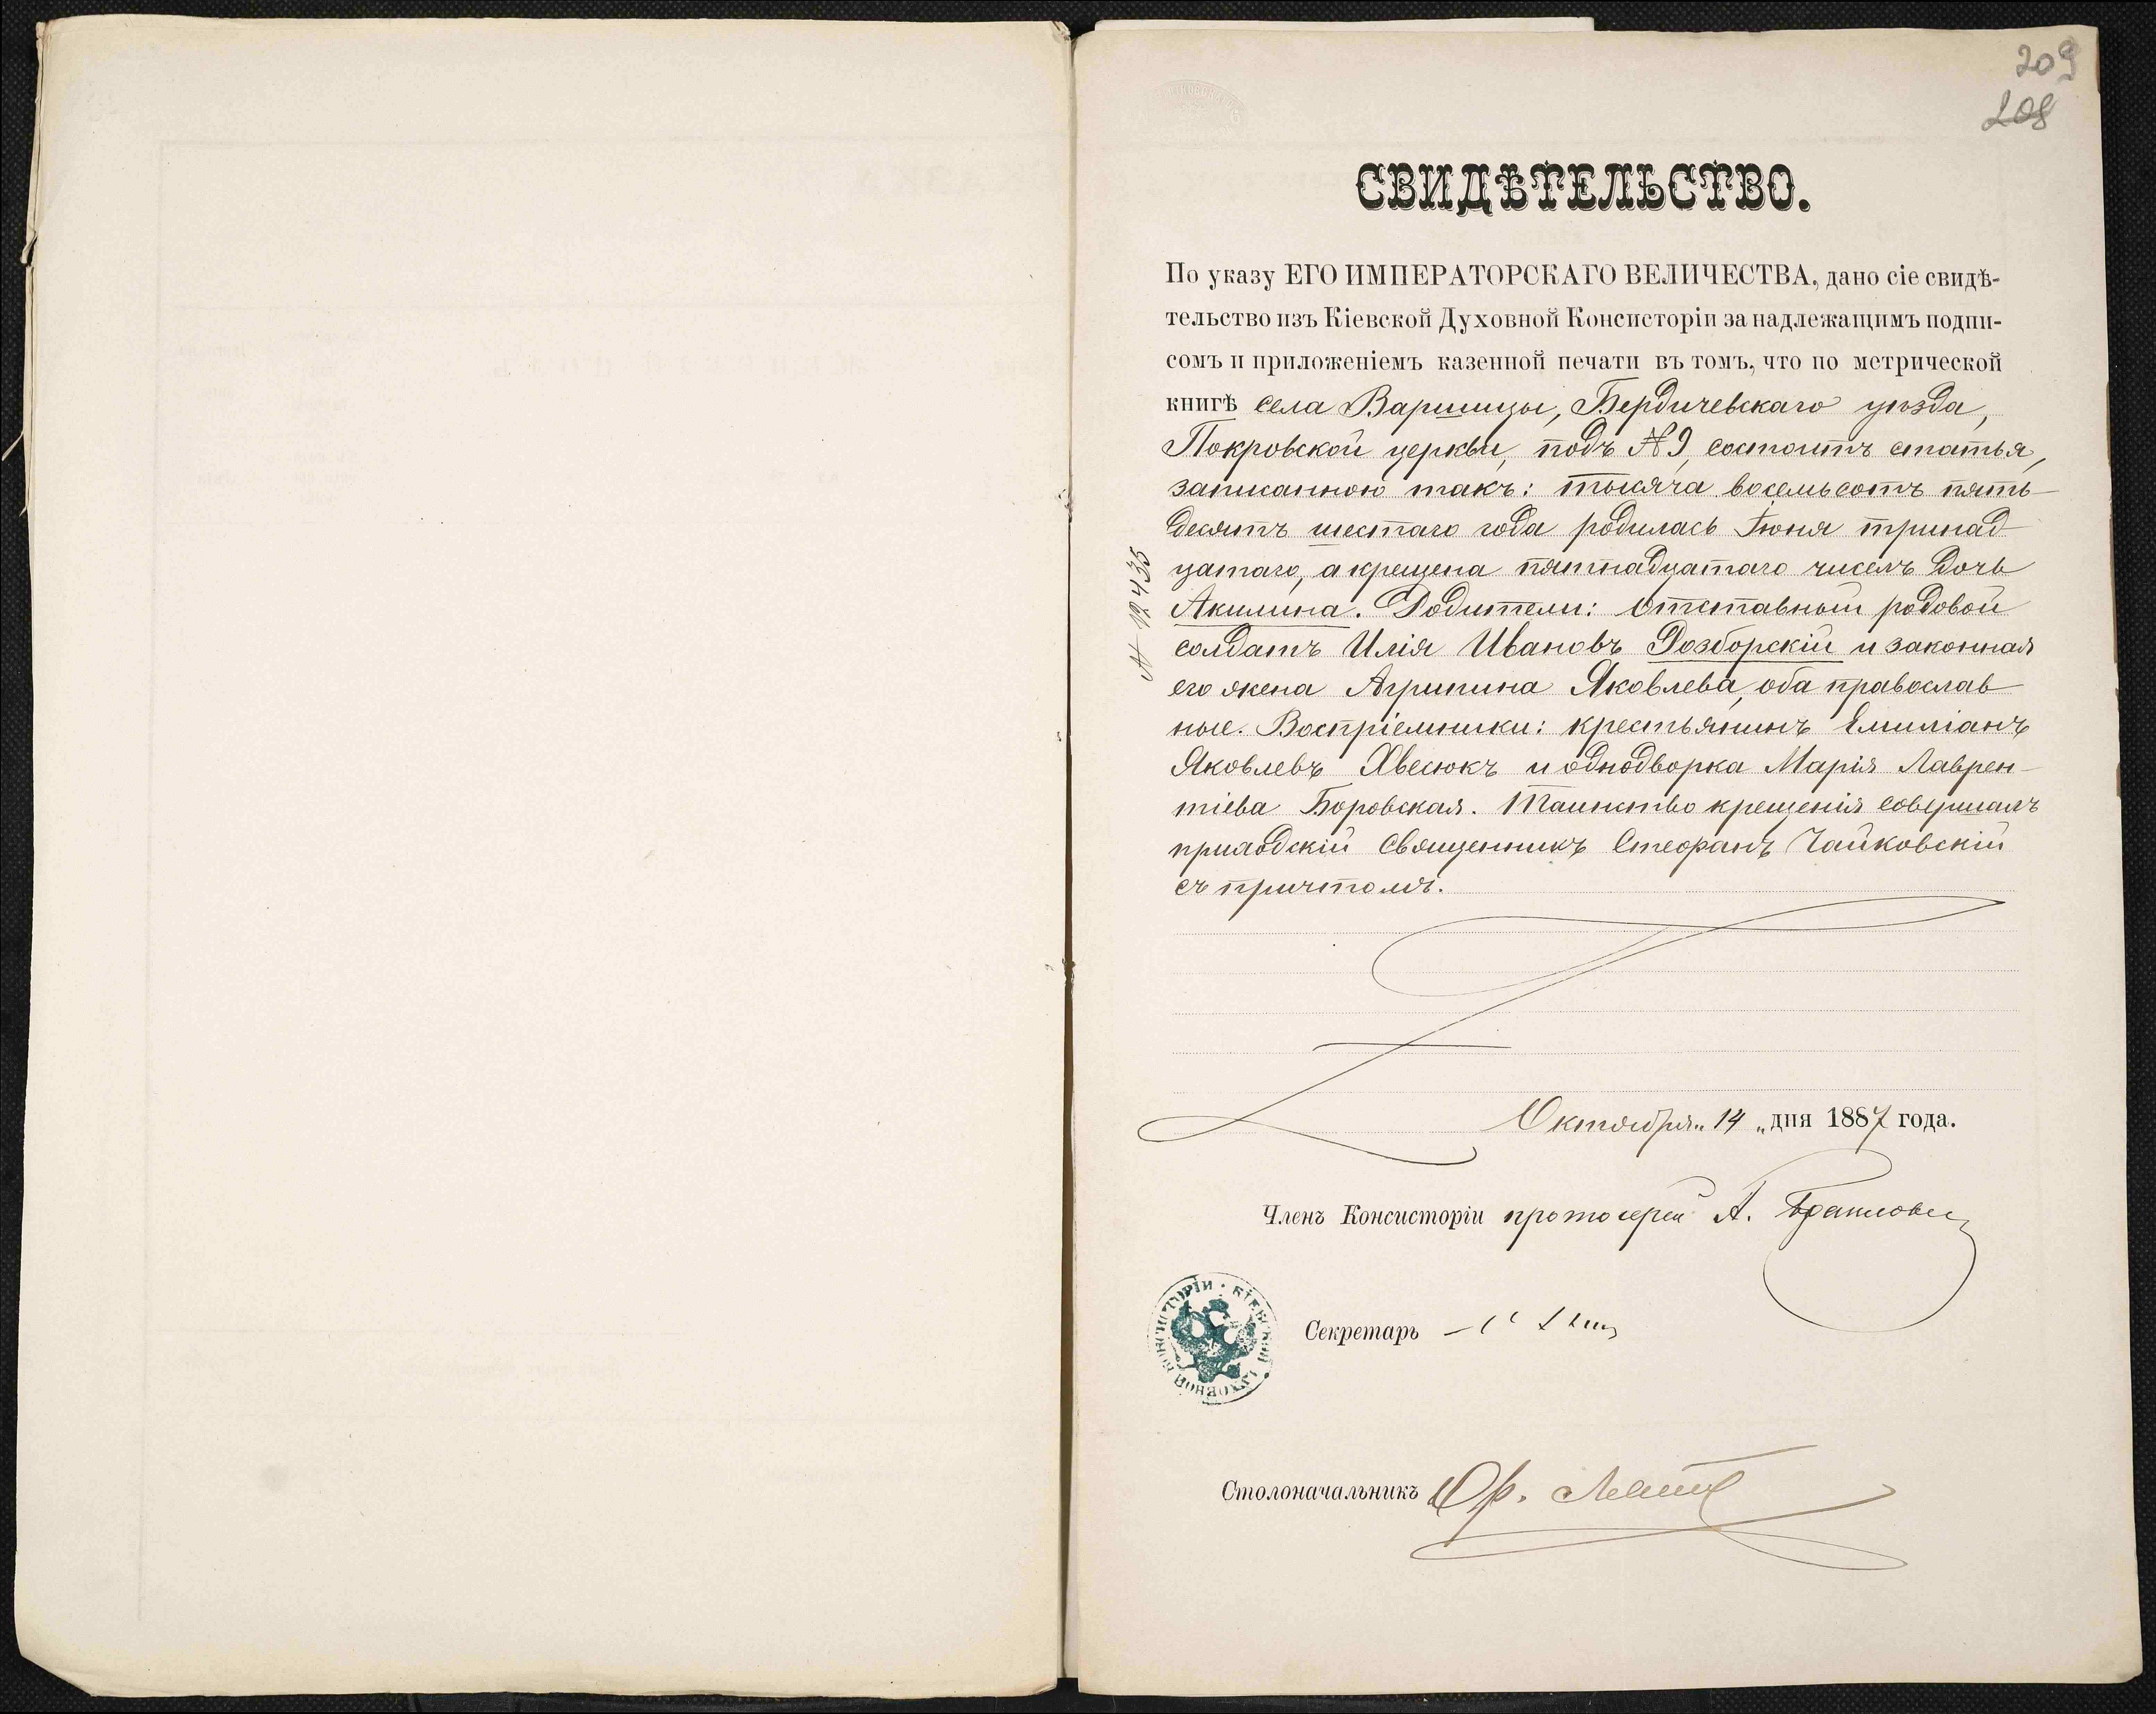 209
208
СВИДѢТЕЛЬСТВО.
По указу ЕГО ИМПЕРАТОРСКАГО ВЕЛИЧЕСТВА, дано сіе свидѣ-
тельство изъ Кіевской Духовной Консисторіи за надлежащимъ подпи-
сомъ и приложеніемъ казенной печати въ томъ, что по метрической
книгѣ села Варшицы, Бердичевскаго уѣзда,
Покровской церкви, подъ №9, состоитъ статья,
записанною такъ: тысяча восемьсотъ пять-
десятъ шестаго года родилась Іюня тринад-
цатаго, а крещена пятнадцатаго чиселъ дочь
Акилина. Родители: Отставный рядовой
солдатъ Илія Ивановъ Розборскій и законная
его жена Агрипина Яковлева, оба православ-
ные. Воспріемники: крестьянинъ Емиліанъ
Яковлевъ Хвесюкъ и однодворка Марія Лаврен-
тіева Боровская. Таинство крещенія совершалъ
приходскій Священникъ Стефанъ Чайковскій
съ причтомъ.
№ 12435
Октября „ 14 „ дня 1887 года.
Членъ Консисторіи протоіерей А.
КІЕВСКОЙ ДУХОВНОЙ КОНСИСТОРІИ
Секретарь
Столоначальникъ